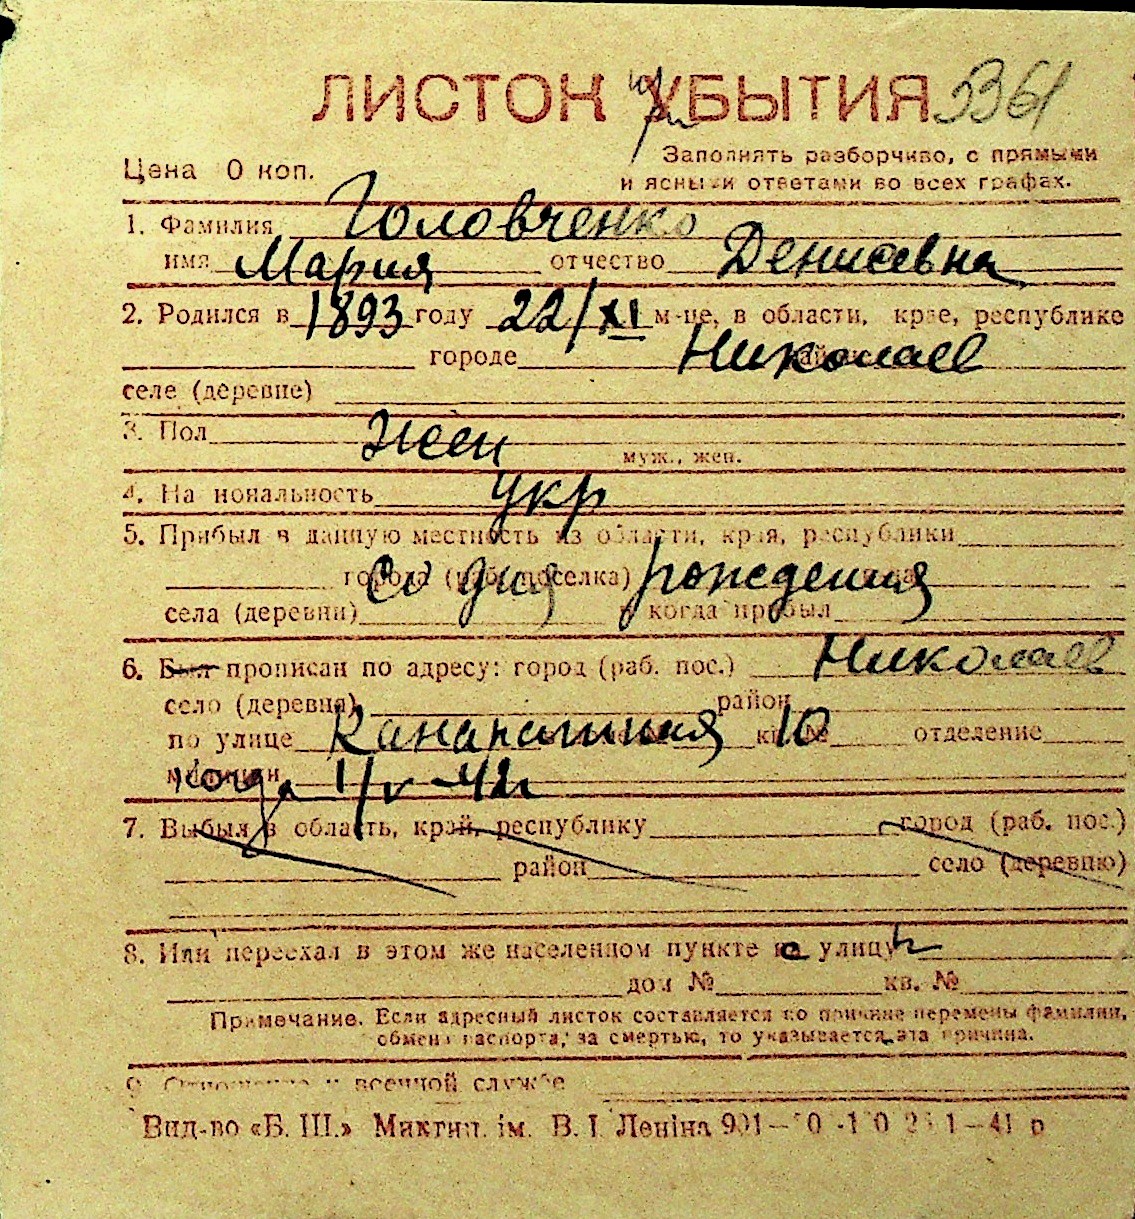 ЛИСТОК УБЫТИЯ 5361
при
Цена 0 коп.
Заполнять разборчиво, с прямыми
и ясными ответами во всех графах.
1. Фамилия Головченко
имя Мария отчество Денисевна
2. Родился в 1893 году 22/XI м-це, в области, крае, республике
городе Николаев
селе (деревне)
3. Пол жен
муж., жен.
4. Национальность укр
5. Прибыл в данную местность из области, края, республики
города (раб. поселка) со дня рождения
села (деревни) когда прибыл
6. Был прописан по адресу: город (раб. пос.) Николаев
село (деревня) район
по улице 10 отделение
когда 1/V-42г
7. Выбыл в область, край, республику город (раб. пос.)
район село (деревню)
8. Или переехал в этом же населенном пункте улицу
дом № кв. №
Примечание. Если адресный листок составляется по причине перемены фамилии,
обмена паспорта, за смертью, то указывается эта причина.
9. Отношение к военной службе
Вид-во «Б. Ш.» Миктип. ім. В. І. Леніна 41 р